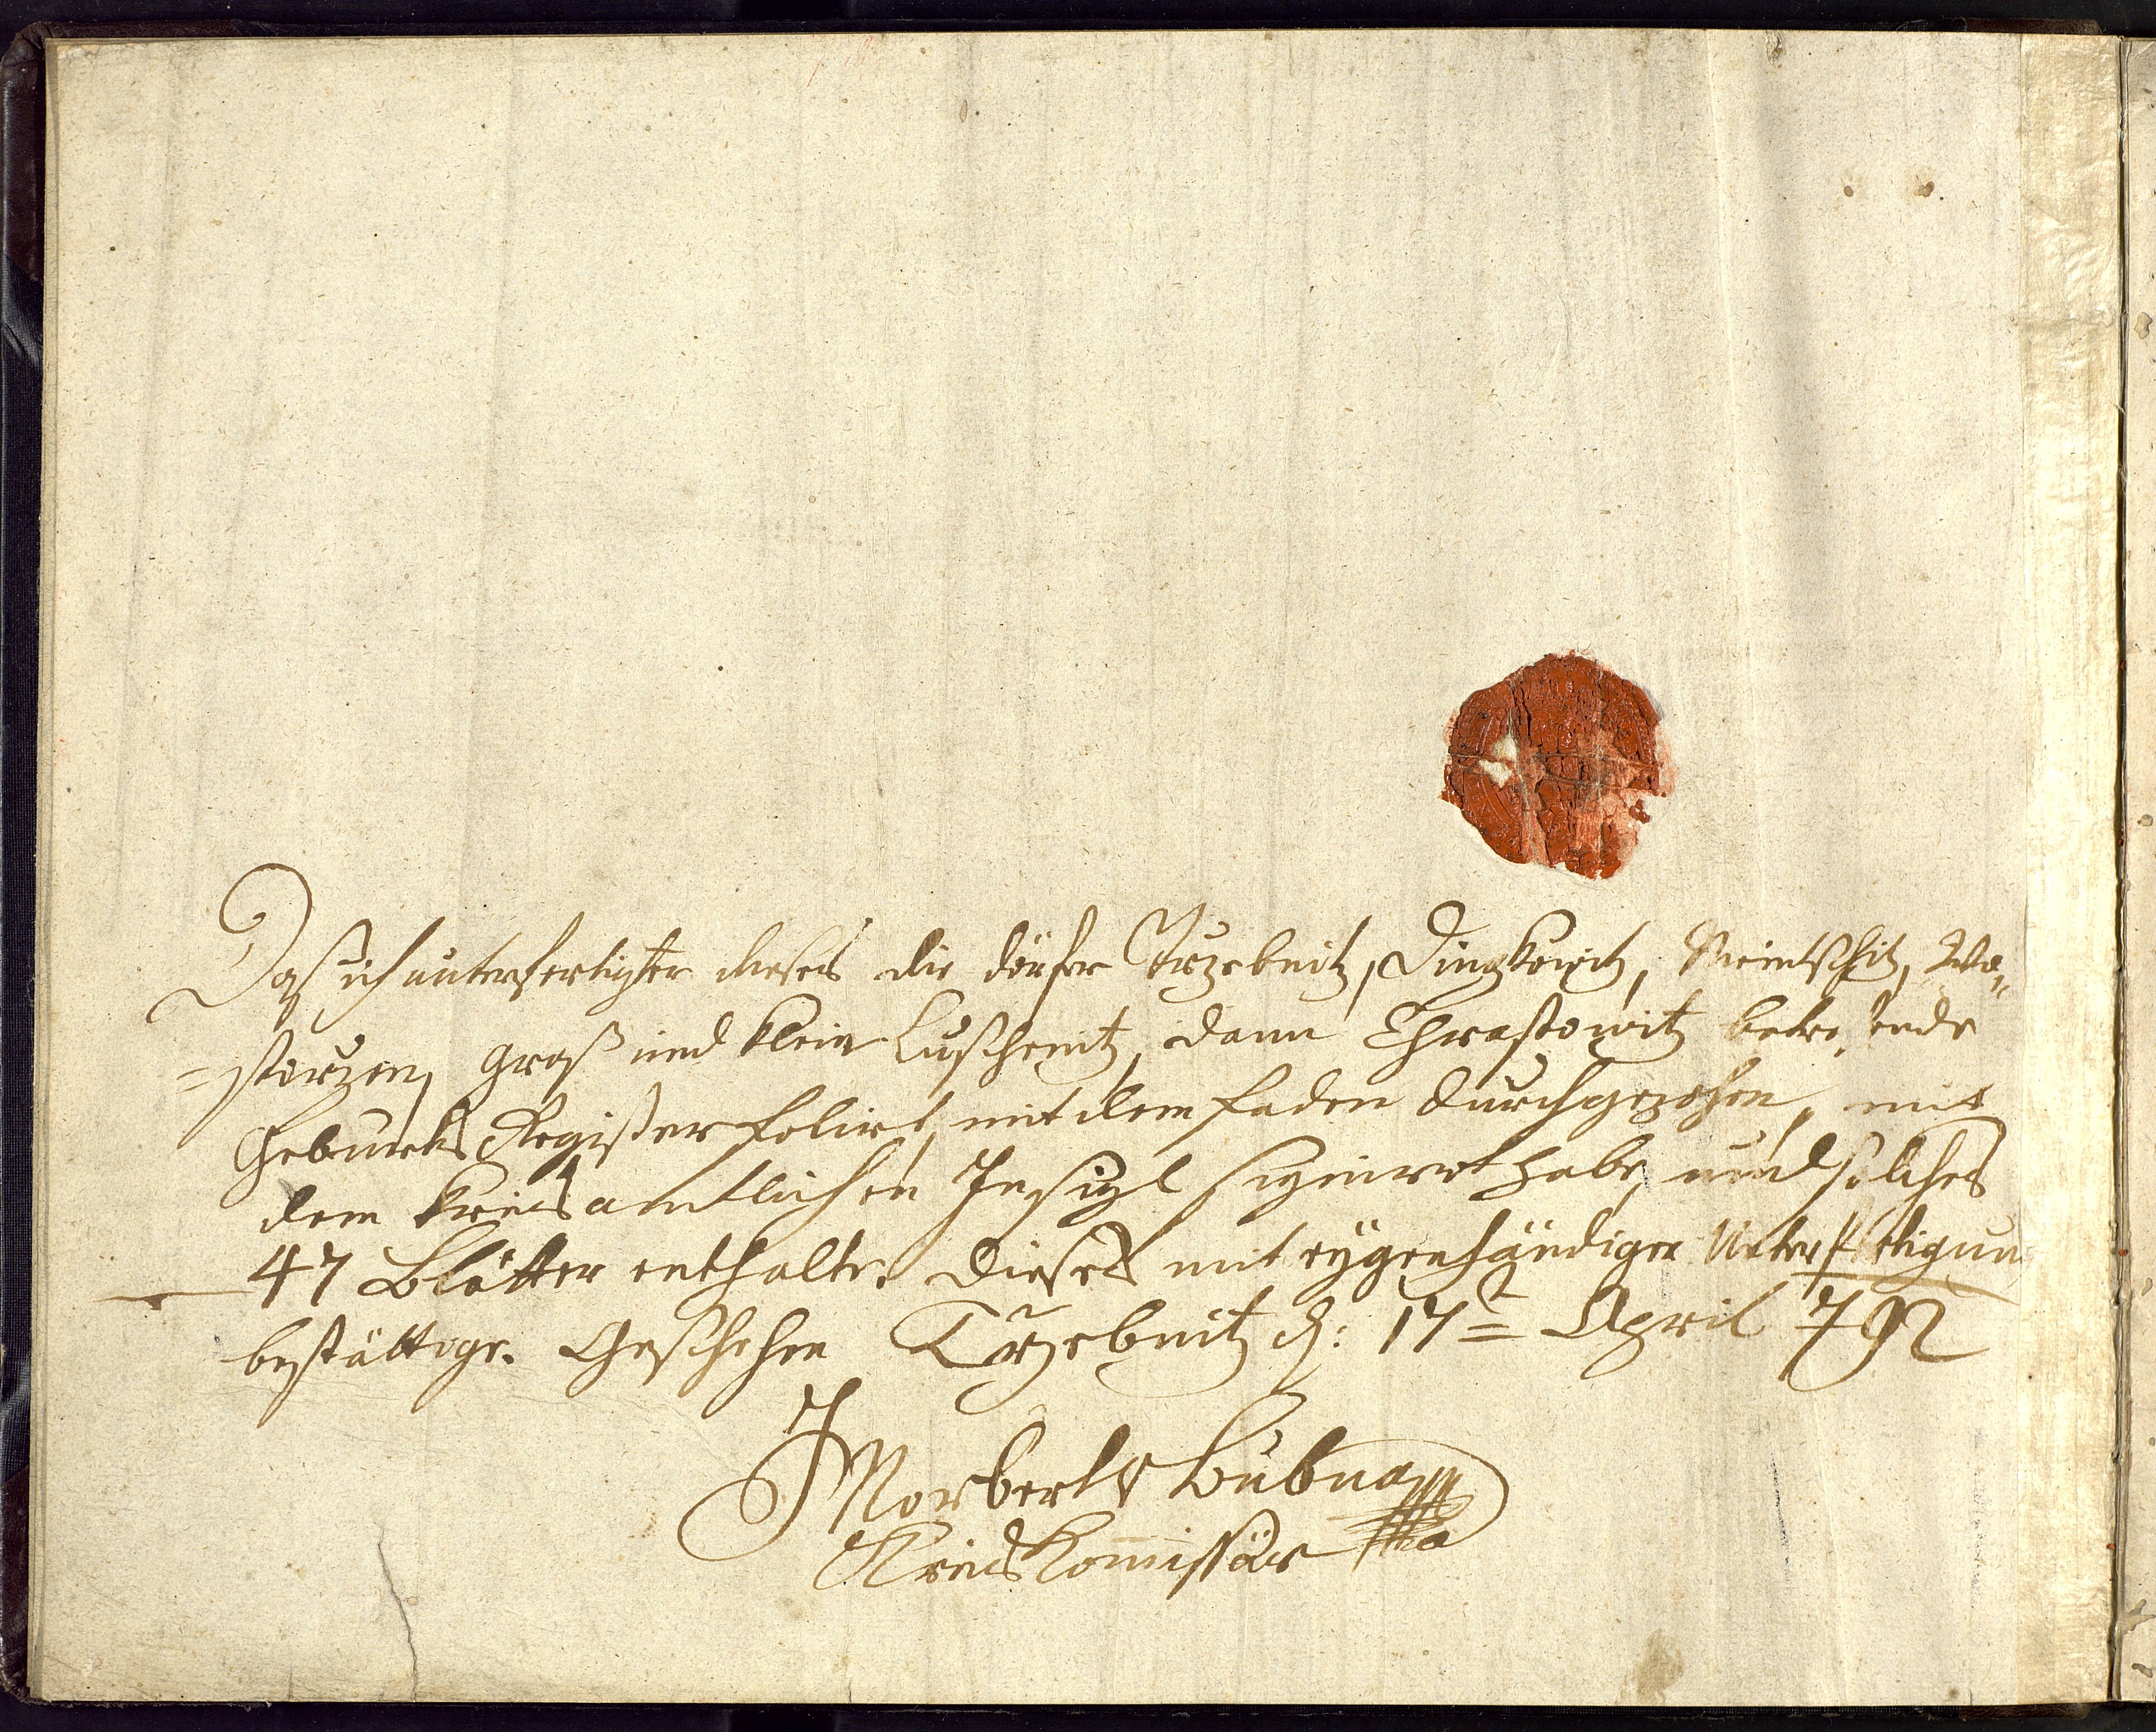 Daß ich unterfertigter dieses die dörfer Trzebnitz, Dingkowitz, Nemtschitz, Wo„
=storzen, groß und klein Luschenitz, dann Chrastowitz betre, ende
Geburts Register folirt, mit dem faden durchgezohen, mit
dem kreisamtlichen Insigl signirt habe, und solches
47 Blätter enthalte. dieses mit eygenhändiger Unterfertigun
bestättige. Geschehen Trzebnitz d: 17t April 792
J Norbert v Bubna
Kreiskommissär